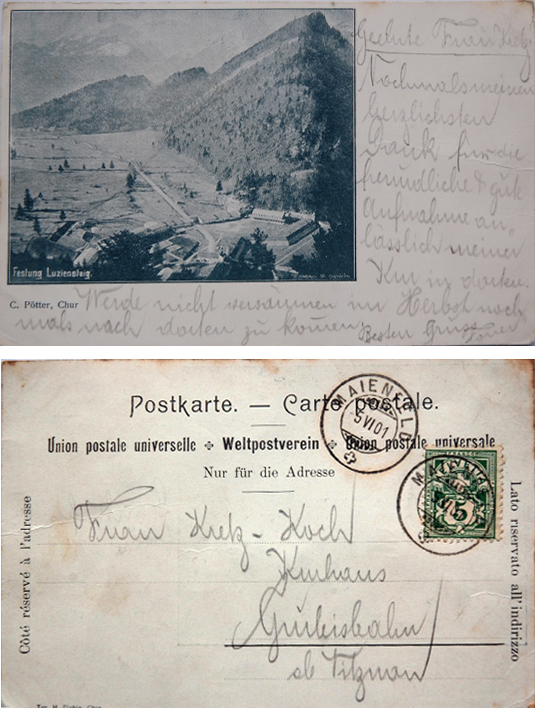 Geehrte Frau Kietz
Nochmals meinen
herzlichsten
Dank für die
freundliche & gute
Aufnahme an,
lässlich meiner
Kur in dorten.
Werde nicht versäumen im Herbst noch
mals nach dorten zu kommen.
Besten Gruss
Festung Luziensteig.
C. Pötter, Chur
Postkarte. — Carte postale.
Union postale universelle ✣ Weltpostverein ✣ Union postale universale
Nur für die Adresse
MAIENFELD
5 VI 01
MAIENFELD
FRANCO
5
Côté réservé à l'adresse
Lato riservato all'indirizzo
Frau Kietz-Koch
Kurhaus
Grubisbalm
ob Vitznau